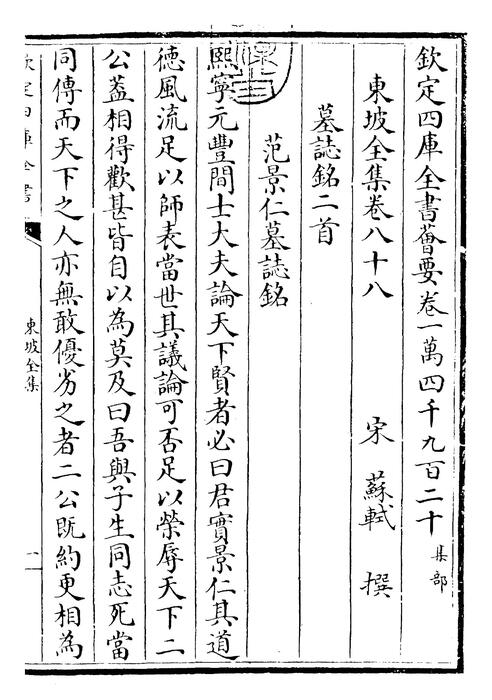 欽定四庫全書薈要卷一萬四千九百二十 集部
東坡全集卷八十八 宋 蘇軾 撰
墓誌銘二首
范景仁墓誌銘
熙寧元豐間士大夫論天下賢者必曰君實景仁其道
德風流足以師表當世其議論可否足以榮辱天下二
公葢相得歡甚皆自以為莫及曰吾與子生同志死當
同傳而天下之人亦無敢優劣之者二公既約更相為
欽定四庫全書
東坡全集
一